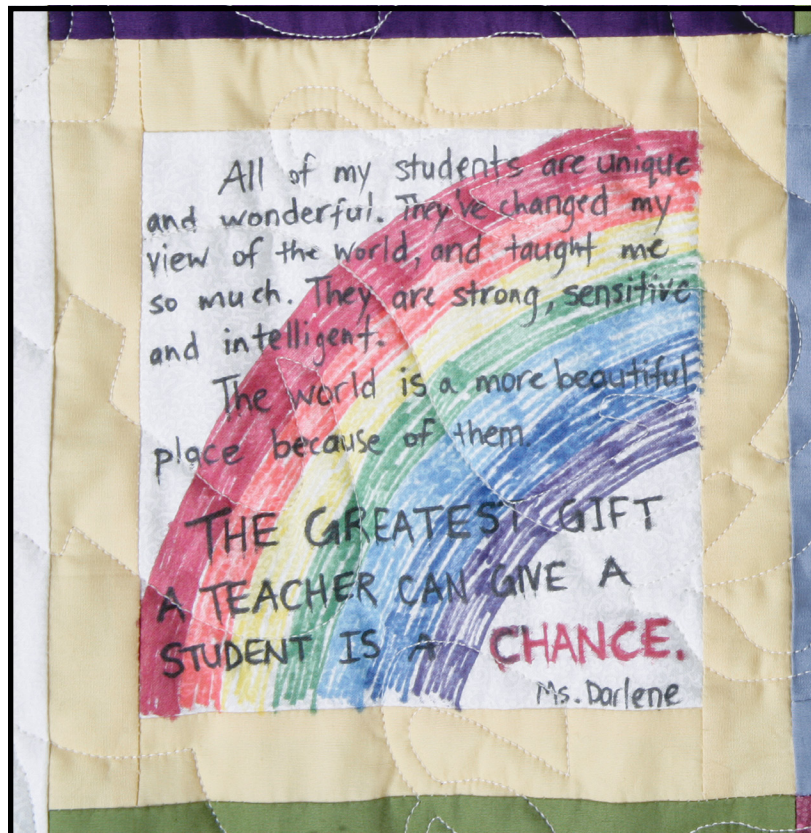 All of my students are unique
and wonderful. They've changed my
view of the world, and taught me
so much. They are strong, sensitive
and intelligent.
The world is a more beautiful
place because of them.
THE GREATEST GIFT
A TEACHER CAN GIVE A
STUDENT IS A CHANCE.
Ms. Darlene